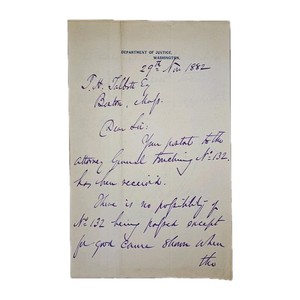 DEPARTMENT OF JUSTICE,
WASHINGTON.
29th Nov 1882
T. H. Talbott Esq
Boston, Mass.
Dear Sir:
Your postal to the
Attorney General touching No 132,
has been received.
There is no possibility of
No 132 being passed except
for good cause shown when
the